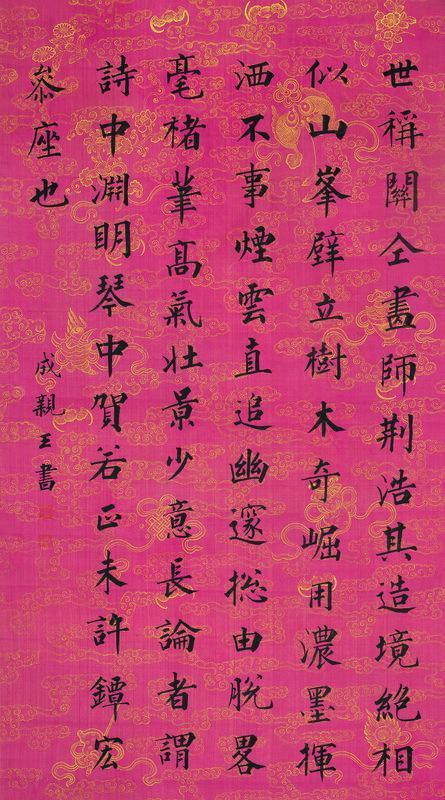 世稱關仝畫師荆浩其造境絶相
似山峯壁立樹木奇崛用濃墨揮
洒不事煙雲直追幽邃捴由脫畧
毫楮筆高氣壯景少意長論者謂
詩中淵明琴中賀若正未許鐔宏
叅座也
成親王書